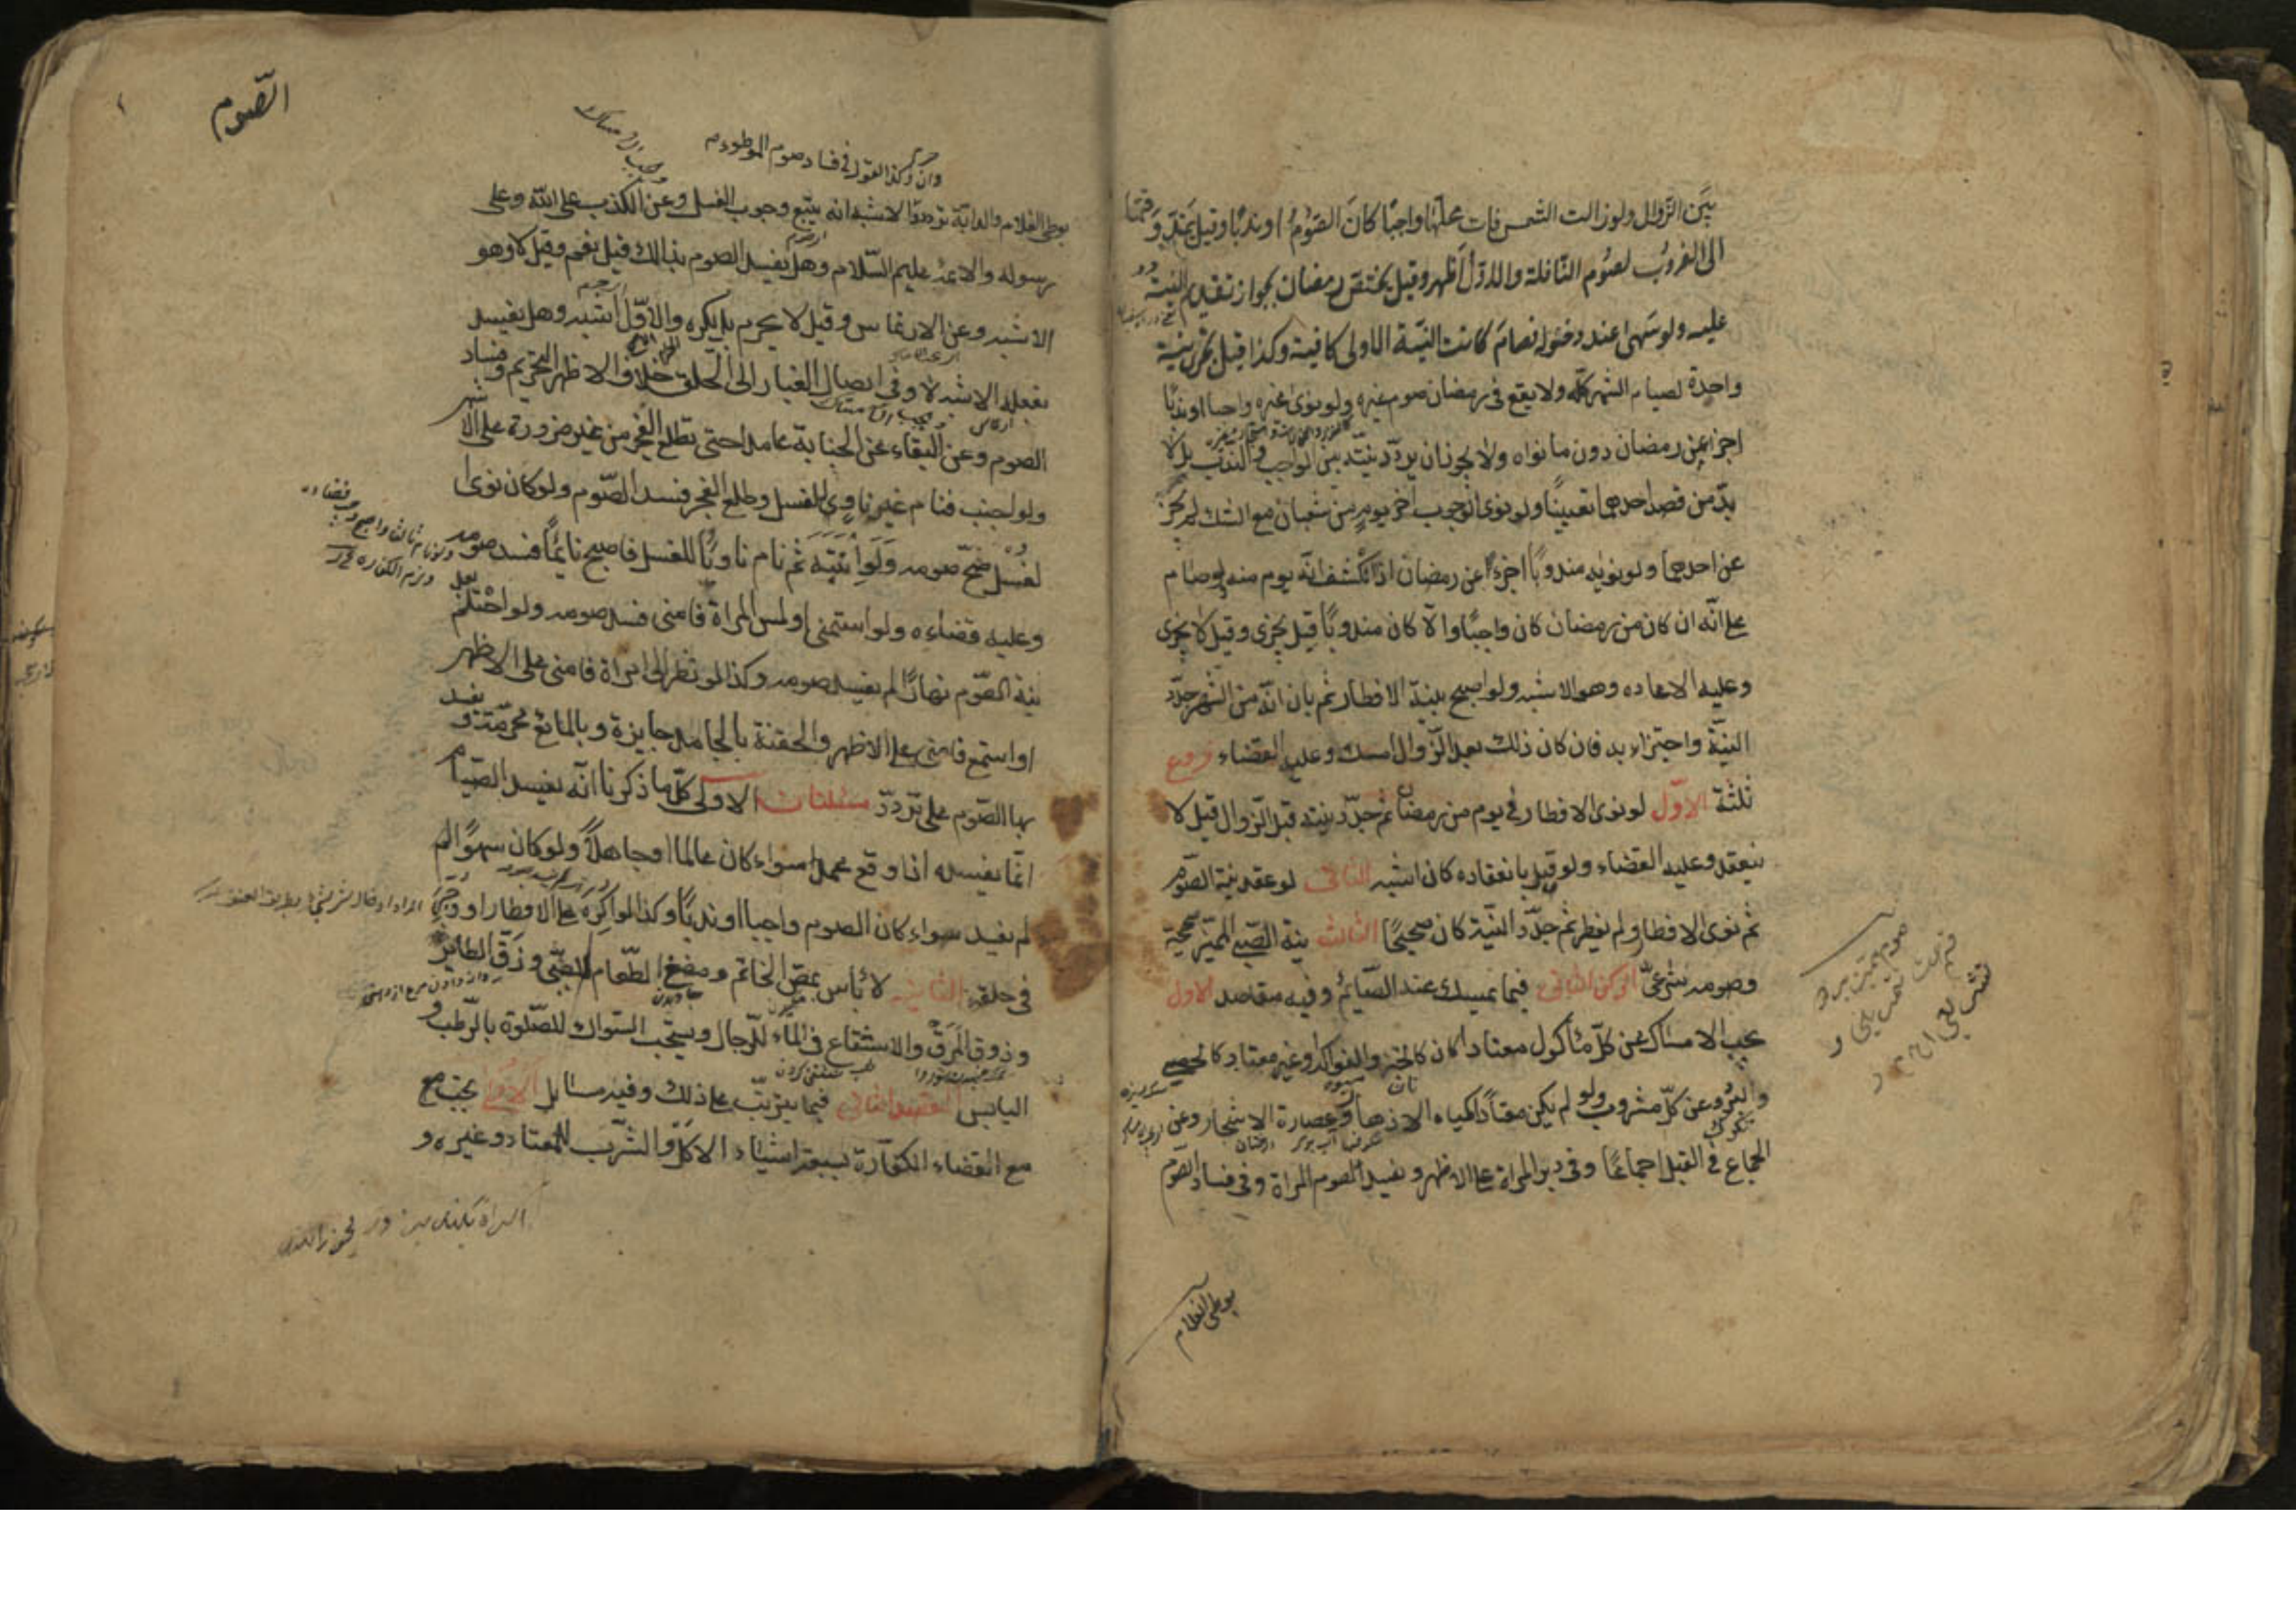 بين الزوال ولو زالت الشمس فات محلها واجبا كان الصوم او ندبا وقيل يمتد وقتها
الى الغروب لصوم النافلة والاول اظهر وقيل يختص رمضان بجواز تقديم النية
عليه ولو سهى عند دخوله فصام كانت النية الاولى كافية وكذا قيل يجزى نية
واحدة لصيام الشهر كله ولا يقع في رمضان صوم غيره ولو نوى غيره واجبا او ندبا
اجزأ عن رمضان دون ما نواه ولا يجوز ان يردد نيته بين الواجب والندب بل لا
بد من قصد احدهما تعيينا ولو نوى الوجوب اخر يوم من شعبان مع الشك لم يجز
عن احدهما ولو نواه مندوبا اجزء عن رمضان اذا انكشف انه يوم منه ولو صام
على انه ان كان من رمضان كان واجبا والا كان مندوبا قيل يجزى وقيل لا يجزى
وعليه الاعاده وهو الاشبه ولو اصبح بنية الافطار ثم بان انه من الشهر جدد
النية واجتزاء به فان كان ذلك بعد الزوال امسك وعليه القضاء فروع
ثلثة الاول لو نوى الافطار في يوم من رمضان ثم جدد نيته قبل الزوال قيل لا
ينعقد وعليه القضاء ولو قيل بانعقاده كان اشبه الثانى لو عقد نية الصوم
ثم نوى الافطار ولم يفطر ثم جدد النية كان صحيحا الثالث نية الصبى المميز صحيحة
وصومه شرعى الركن الثانى فيما يمسك عنه الصائم وفيه مقاصد الاول
يجب الامساك عن كل مأكول معتادا كان كالخبز والفواكه او غير معتاد كالحصى
والبرد وعن كل مشروب ولو لم يكن معتادا كمياه الازهار وعصارة الاشجار وعن
الجماع في القبل اجماعا وفى دبر المراة على الاظهر ويفسد الصوم المراة وفى فساد الصوم
بوطى الغلام
الصوم
وان حرم وكذا القول في فساد صوم الموطوء
بوطى الغلام والدابة تردد والاشبه انه يتبع وجوب الغسل وعن الكذب على الله وعلى
رسوله والائمة عليهم السلام وهل يفسد الصوم بذلك قيل نعم وقيل لا وهو
الاشبه وعن الارتماس وقيل لا يحرم بل يكره والاول اشبه وهل يفسد
بفعله الاشبه لا وفى ايصال الغبار الى الحلق خلاف الاظهر التحريم وفساد
الصوم وعن البقاء على الجنابة عامدا حتى يطلع الفجر من غير ضرورة على الاشهر
ولو اجنب فنام غير ناوى للغسل وطلع الفجر فسد الصوم ولو كان نوى ا
لغسل صح صومه ولو انتبه ثم نام ناويا للغسل فاصبح نائما فسد صومه
وعليه قضاءه ولو استمنى او لمس المراة فامنى فسد صومه ولو احتلم بعد
نية الصوم نهارا لم يفسد صومه وكذا لو نظر الى امراة فامنى على الاظهر
او استمع فامنى على الاظهر والحقنة بالجامد جايزة وبالمائع محرمة ويفسد
بها الصوم على تردد مسئلتان الاولى كل ما ذكرنا انه يفسد الصيام
انما يفسده اذا وقع عمدا سواء كان عالما او جاهلا ولو كان سهوا لم
لم يفسد سواء كان الصوم واجبا او ندبا وكذا لو اكره على الافطار او وجر
في حلقه الثانية لا بأس بمص الخاتم ومضغ الطعام للصبى وزق الطائر
وذوق المرق والاستنقاع في الماء للرجال ويستحب السواك للصلوة بالرطب و
اليابس المقصد الثانى فيما يترتب على ذلك وفيه مسايل الاولى يجب مع
مع القضاء الكفارة بسبعة اشياء الاكل والشرب المعتاد وغيره و